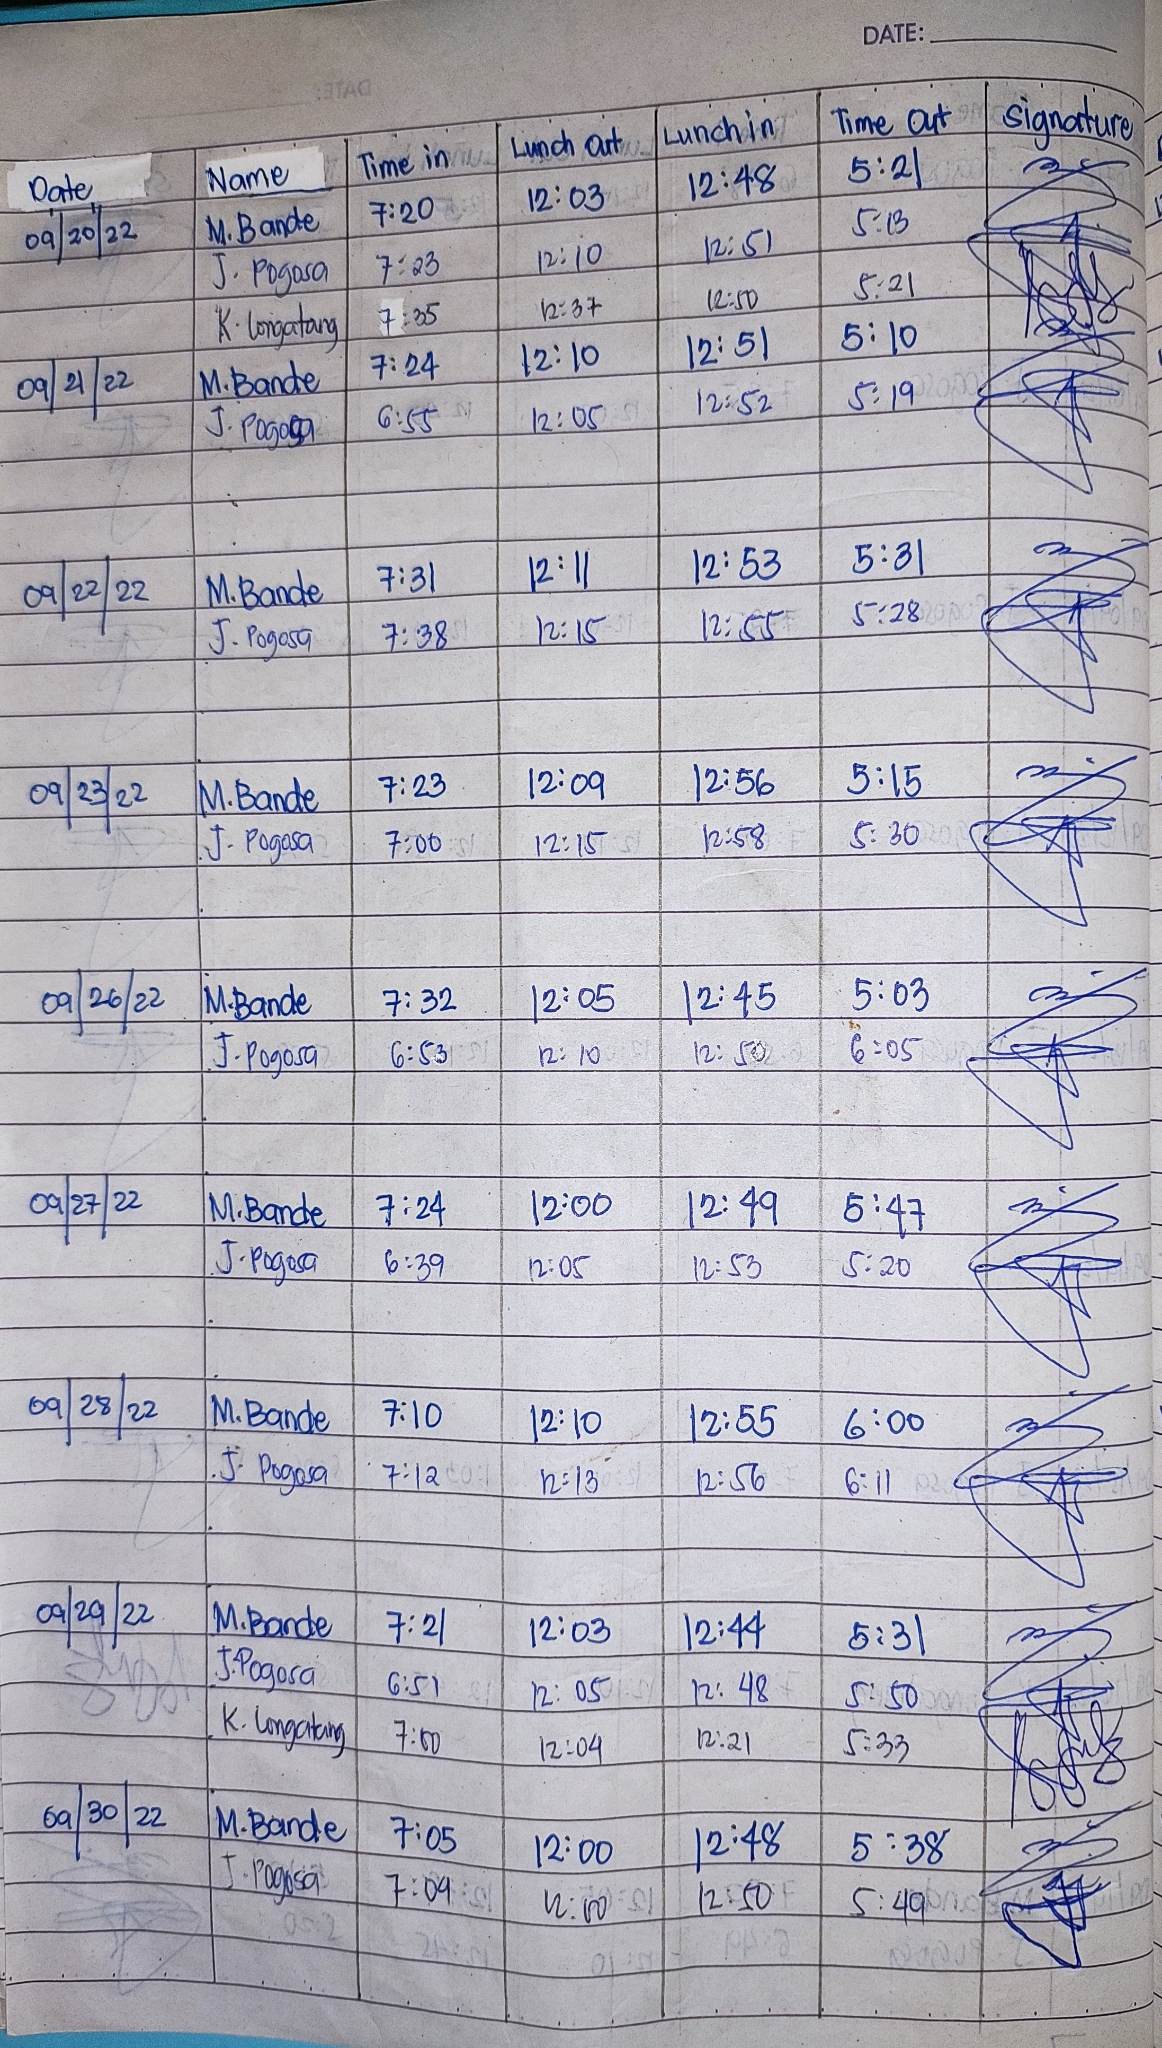 DATE:
Date Name Time in Lunch out Lunch in Time out Signature
09/20/22 M. Bande 7:20 12:03 12:48 5:21
J. Pogosa 7:23 12:10 12:51 5:13
K. Longatang 7:35 12:37 12:50 5:21
09/21/22 M. Bande 7:24 12:10 12:51 5:10
J. Pogosa 6:55 12:05 12:52 5:19
09/22/22 M. Bande 7:31 12:11 12:53 5:31
J. Pogosa 7:38 12:15 12:55 5:28
09/23/22 M. Bande 7:23 12:09 12:56 5:15
J. Pogosa 7:00 12:15 12:58 5:30
09/26/22 M. Bande 7:32 12:05 12:45 5:03
J. Pogosa 6:53 12:10 12:50 6:05
09/27/22 M. Bande 7:24 12:00 12:49 5:47
J. Pogosa 6:39 12:05 12:53 5:20
09/28/22 M. Bande 7:10 12:10 12:55 6:00
J. Pogosa 7:12 12:13 12:56 6:11
09/29/22 M. Bande 7:21 12:03 12:44 5:31
J. Pogosa 6:51 12:05 12:48 5:50
K. Longatang 7:00 12:04 12:21 5:33
09/30/22 M. Bande 7:05 12:00 12:48 5:38
J. Pogosa 7:09 12:00 12:50 5:49